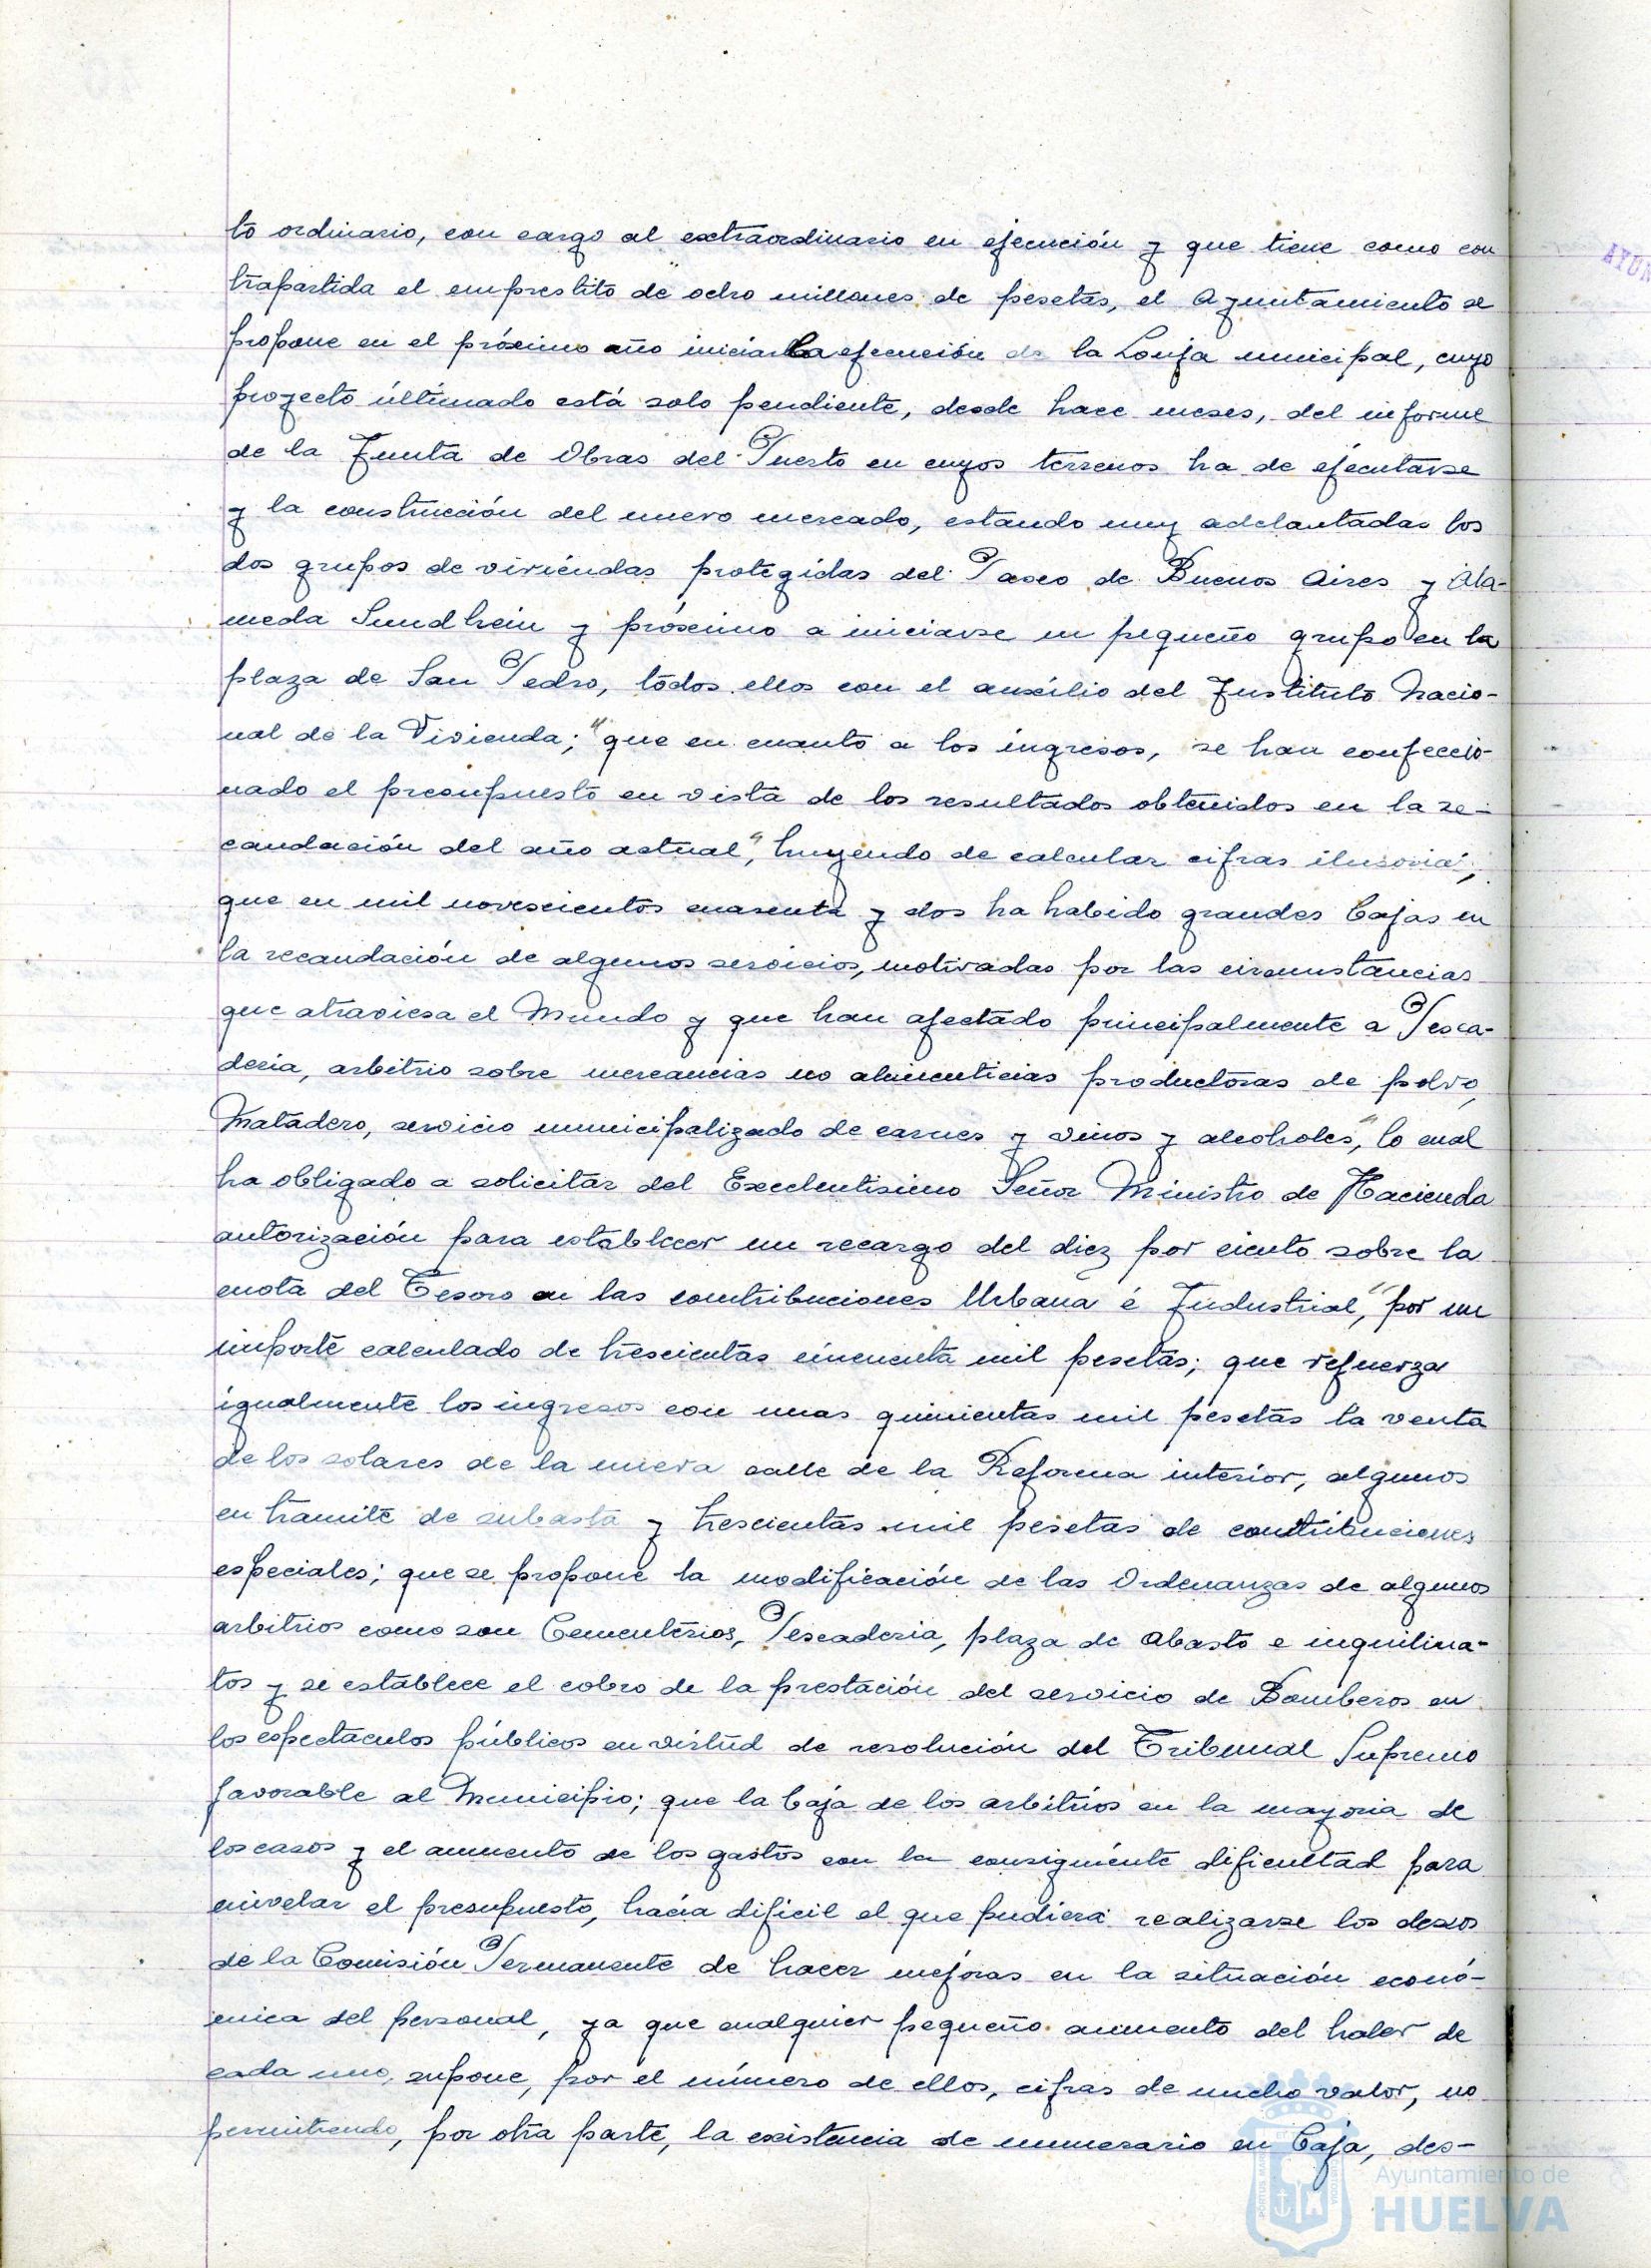 to ordinario, con cargo al extraordinario en ejecución y que tiene como con
trapartida el emprestito de ocho millones de pesetas, el Ayuntamiento se
propone en el próximo año iniciar la ejecución de la Lonja municipal, cuyo
proyecto últimado está solo pendiente, desde hace meses, del informe
de la Junta de Obras del Puerto en cuyos terrenos ha de ejecutarse
y la construcción del nuevo mercado, estando muy adelantadas los
dos grupos de viviendas protegidas del Paseo de Buenos Aires y Ala-
meda Sundhein y próximo a iniciarse un pequeño grupo en la
plaza de San Pedro, todos ellos con el auxilio del Instituto Nacio-
nal de la Vivienda; "que en cuanto a los ingresos, se han confeccio-
nado el presupuesto en vista de los resultados obtenidos en la re-
caudación del año actual", huyendo de calcular cifras ilusoria,
que en mil novescientos cuarenta y dos ha habido grandes bajas en
la recaudación de algunos servicios, motivadas por las circunstancias
que atraviesa el Mundo y que han afectado principalmente a Pesca-
deria, arbitrio sobre mercancias no alimenticias productoras de polvo,
Matadero, servicio municipalizado de carnes y vinos y alcoholes", lo cual
ha obligado a solicitar del Excelentisimo Señor Ministro de Hacienda
autorización para establecer un recargo del diez por ciento sobre la
cuota del Tesoro en las contribuciones Urbana é Industrial", por un
importe calculado de trescientas cincuenta mil pesetas; que refuerza
igualmente los ingresos con unas quinientas mil pesetas la venta
de los solares de la nueva calle de la Reforma interior, algunos
en tramite de subasta y trescientas mil pesetas de contribuciones
especiales; que se propone la modificación de las Ordenanzas de algunos
arbitrios como son Cementerios, Pescaderia, plaza de Abasto e inquilina-
tos y se establece el cobro de la prestación del servicio de Bomberos en
los espectaculos públicos en virtud de resolución del Tribunal Supremo
favorable al Municipio; que la baja de los arbitrios en la mayoria de
los casos y el aumento de los gastos con la consiguiente dificultad para
nivelar el presupuesto, hacia dificil el que pudiera realizarse los deseos
de la Comisión Permanente de hacer mejoras en la situación econó-
mica del personal, ya que cualquier pequeño aumento del haber de
cada uno, supone, por el número de ellos, cifras de mucho valor, no
permitiendo, por otra parte, la existencia de numerario en Caja, des-
AYUN
Ayuntamiento de
HUELVA